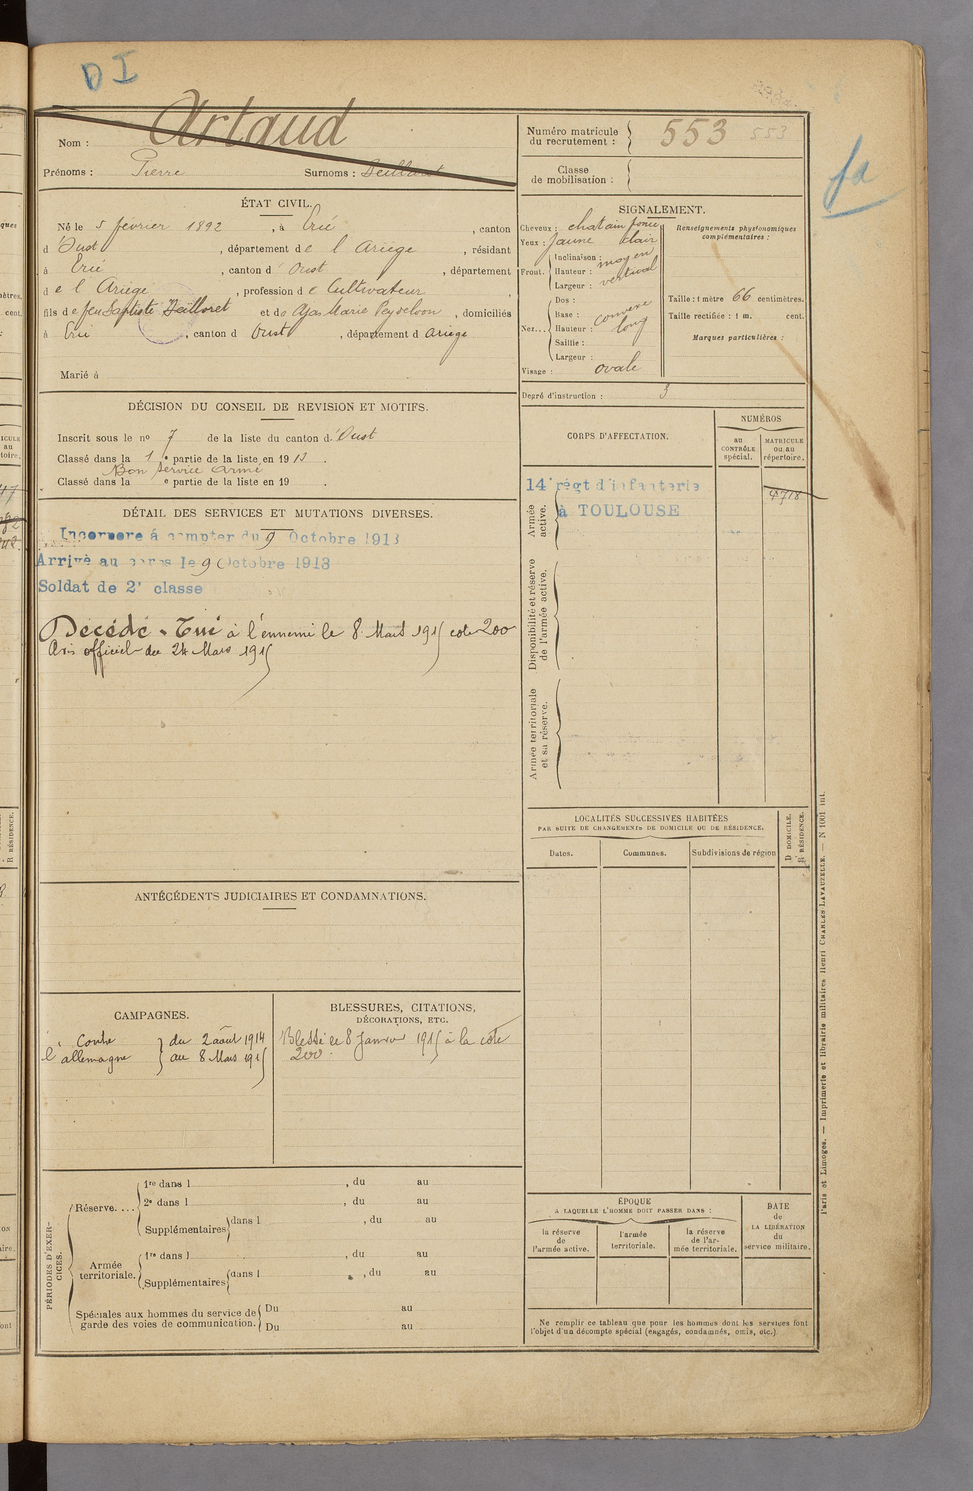 DI
Nom : Artaud
Prénoms : Pierre Surnoms :
Numéro matricule du recrutement : 553 553
Classe de mobilisation :
fa
ÉTAT CIVIL.
Né le 5 février 1892, à Ercé, canton
d'Oust, département de l'Ariège, résidant
à Ercé, canton d'Oust, département
de l'Ariège, profession de Cultivateur,
fils de feu Baptiste et de Marie, domiciliés
à Ercé, canton d'Oust, département d'Ariège
Marié à
SIGNALEMENT.
Cheveux : chatain foncé
Yeux : Jaune clair
Front. Inclinaison : moyen
Hauteur : vertical
Largeur :
Nez... Dos :
Base : convexe
Hauteur : long
Saillie :
Largeur :
Visage : ovale
Renseignements physionomiques
complémentaires :
Taille : 1 mètre 66 centimètres.
Taille rectifiée : 1 m. cent.
Marques particulières :
Degré d'instruction : 3
DÉCISION DU CONSEIL DE REVISION ET MOTIFS.
Inscrit sous le no 7 de la liste du canton d'Oust
Classé dans la 1e partie de la liste en 1913
Bon service armé
Classé dans la e partie de la liste en 19 .
DÉTAIL DES SERVICES ET MUTATIONS DIVERSES.
Incorporé à compter du 9 Octobre 1913
Arrivé au corps le 9 Octobre 1913
Soldat de 2e classe
Décédé. Tué à l'ennemi le 8 Mars 1915 cote 200
Avis officiel du 24 Mars 1915
CORPS D'AFFECTATION.
NUMÉROS
au CONTRÔLE spécial.
MATRICULE ou au répertoire.
Armée active.
14e régt d'infanterie
à TOULOUSE
4718
Disponibilité et réserve de l'armée active.
Armée territoriale et sa réserve.
LOCALITÉS SUCCESSIVES HABITÉES
PAR SUITE DE CHANGEMENTS DE DOMICILE OU DE RÉSIDENCE.
Dates. Communes. Subdivisions de région
D. DOMICILE. R. RÉSIDENCE.
ANTÉCÉDENTS JUDICIAIRES ET CONDAMNATIONS.
CAMPAGNES.
Contre l'allemagne
du 2 août 1914
au 8 Mars 1915
BLESSURES, CITATIONS,
DÉCORATIONS, ETC.
Blessé le 8 Janvier 1915 à la cote
200.
PÉRIODES D'EXERCICES.
Réserve.... 1re dans l , du au
2e dans l , du au
Supplémentaires dans l , du au
Armée territoriale. 1re dans l , du au
Supplémentaires dans l , du au
Spéciales aux hommes du service de
garde des voies de communication.
Du au
Du au
ÉPOQUE
À LAQUELLE L'HOMME DOIT PASSER DANS :
la réserve de l'armée active.
l'armée territoriale.
la réserve de l'armée territoriale.
DATE de LA LIBÉRATION du service militaire.
Ne remplir ce tableau que pour les hommes dont les services font
l'objet d'un décompte spécial (engagés, condamnés, omis, etc.)
Paris et Limoges. — Imprimerie et librairie militaires Henri CHARLES-LAVAUZELLE. — N 1001 int.